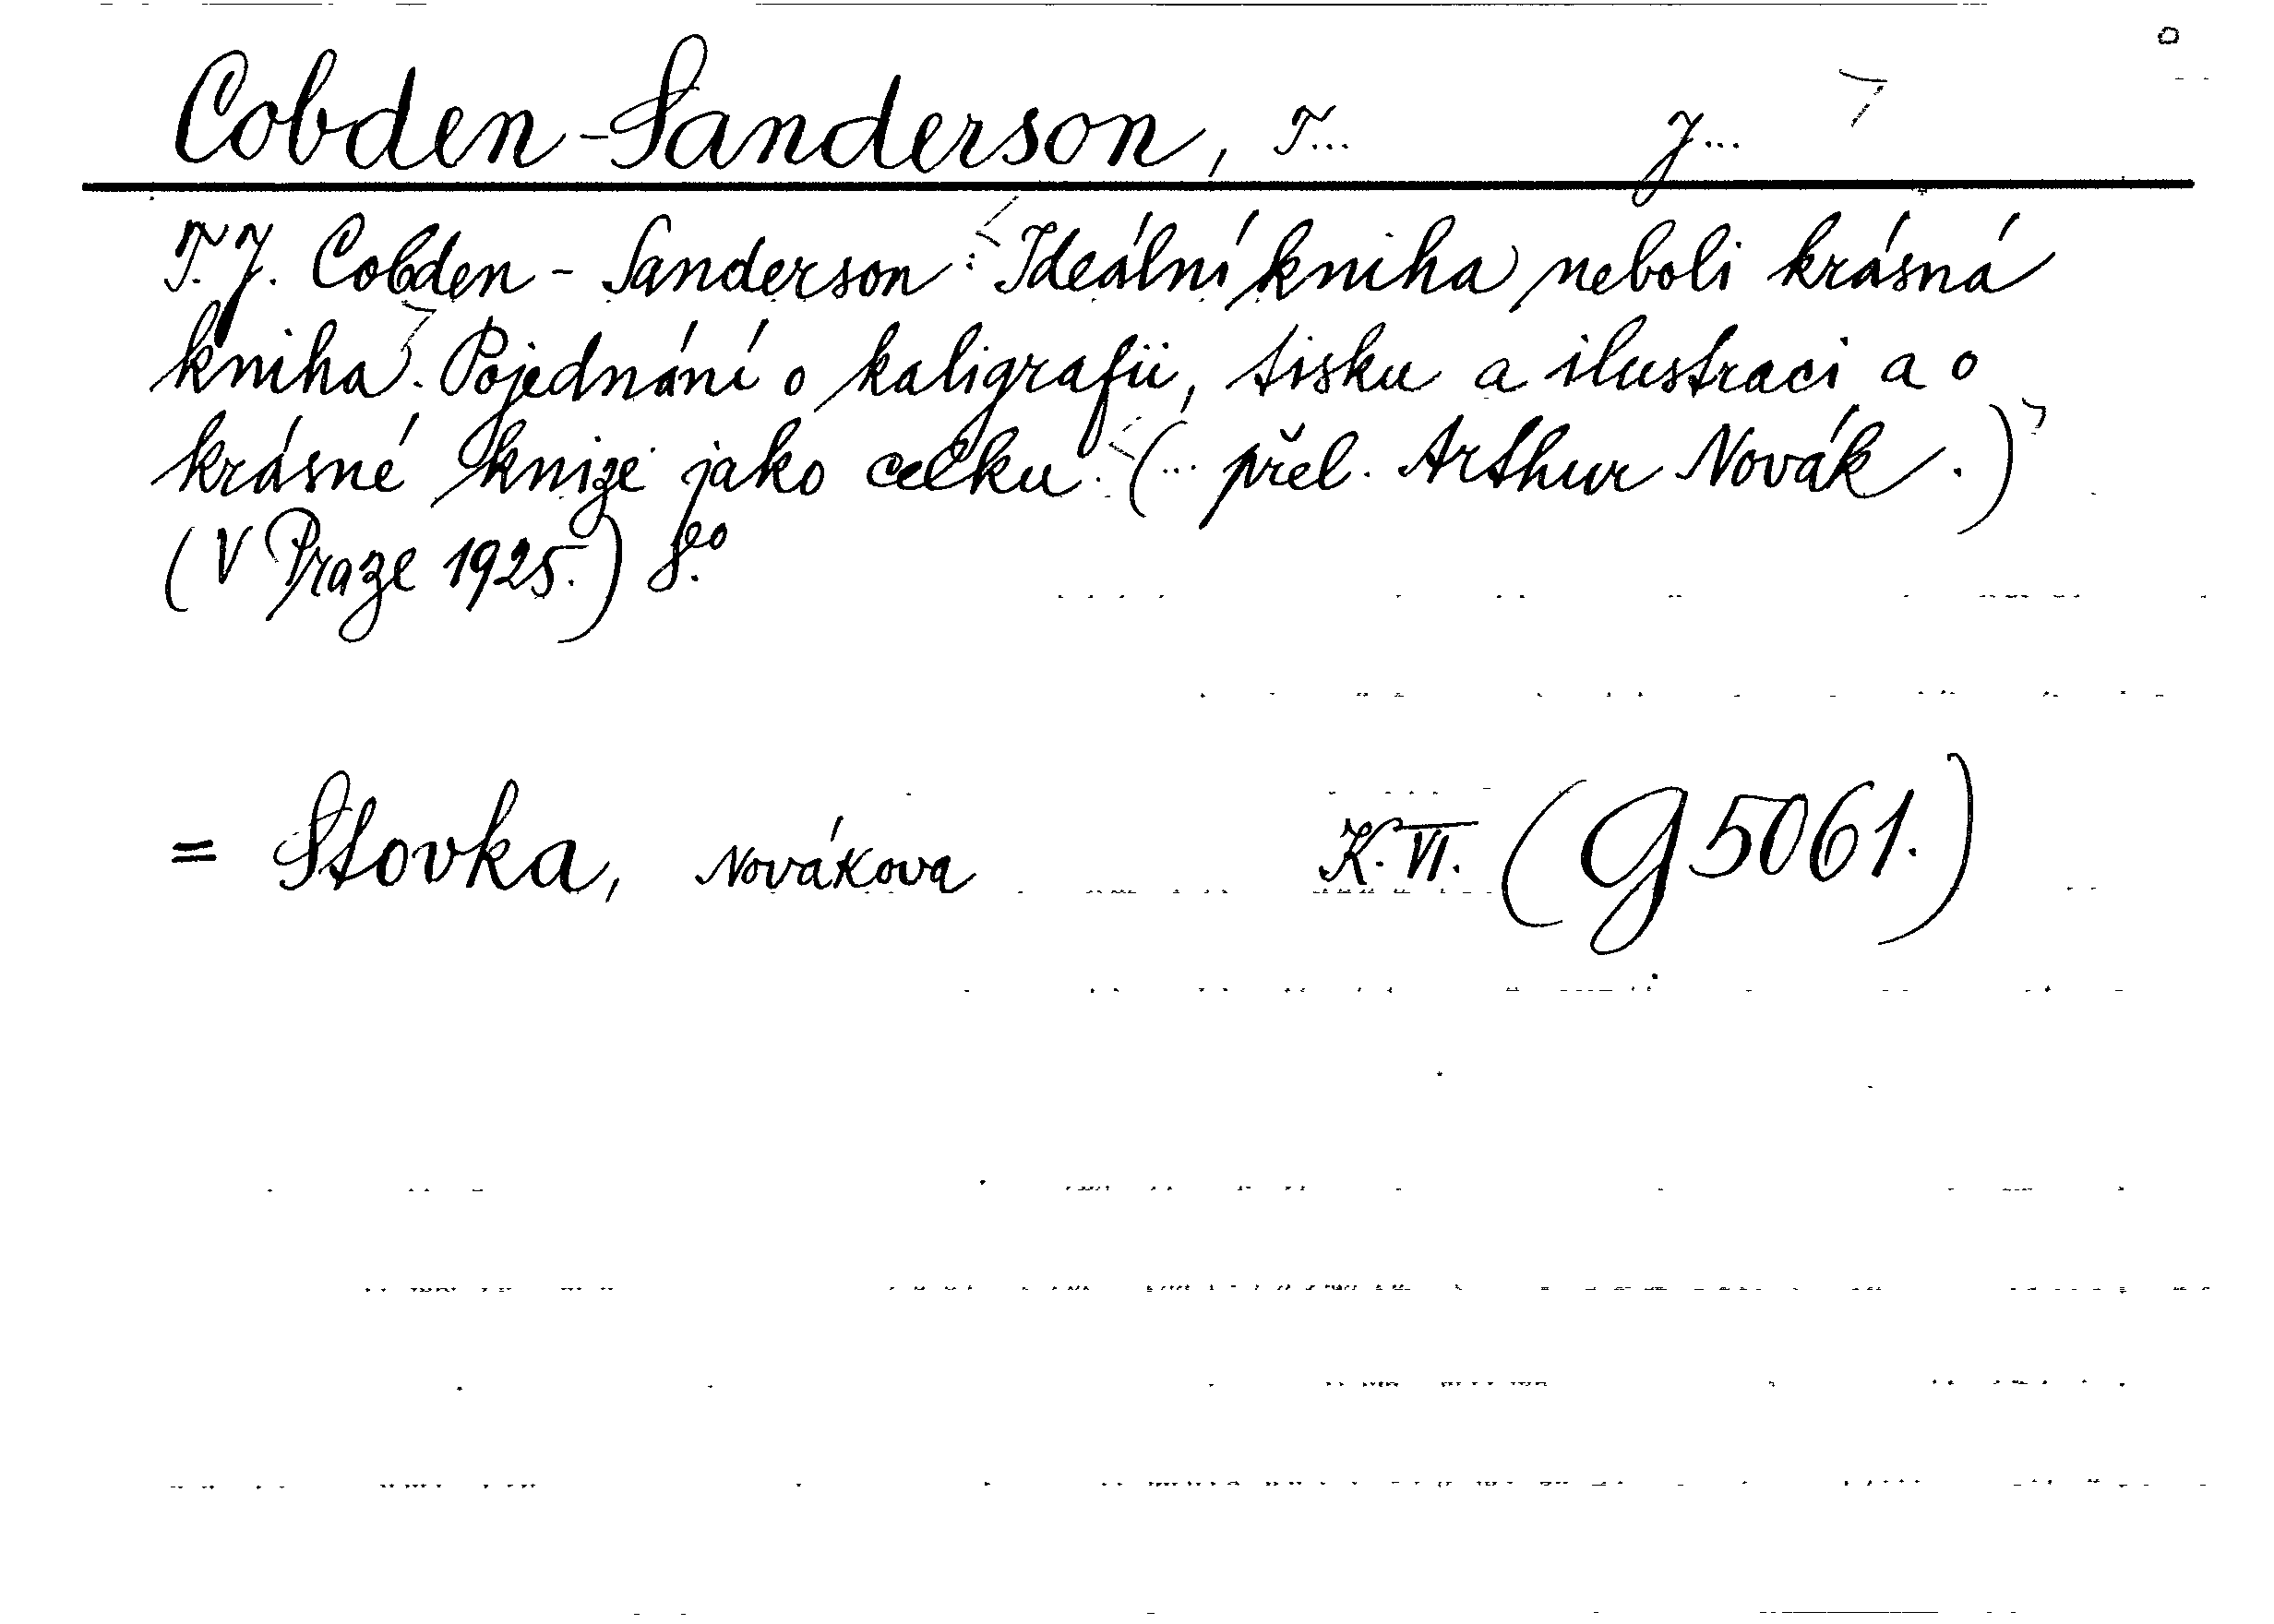 Cobden-Sanderson, T... J...
T. J. Cobden - Sanderson: Ideální kniha neboli krásná
kniha. Pojednání o kaligrafii, tisku a ilustraci a o
krásné knize jako celku. (... přel. Arthur Novák.)
(V Praze 1925.) 8.º
= Stovka, Novákova K. VI. (G 5061.)